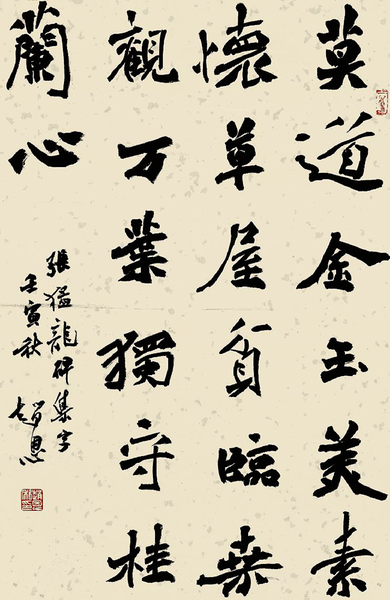 莫道金玉美素
懷草屋貧臨桑
觀万業獨守桂
蘭心
張猛龍碑集字
壬寅秋 趙恩